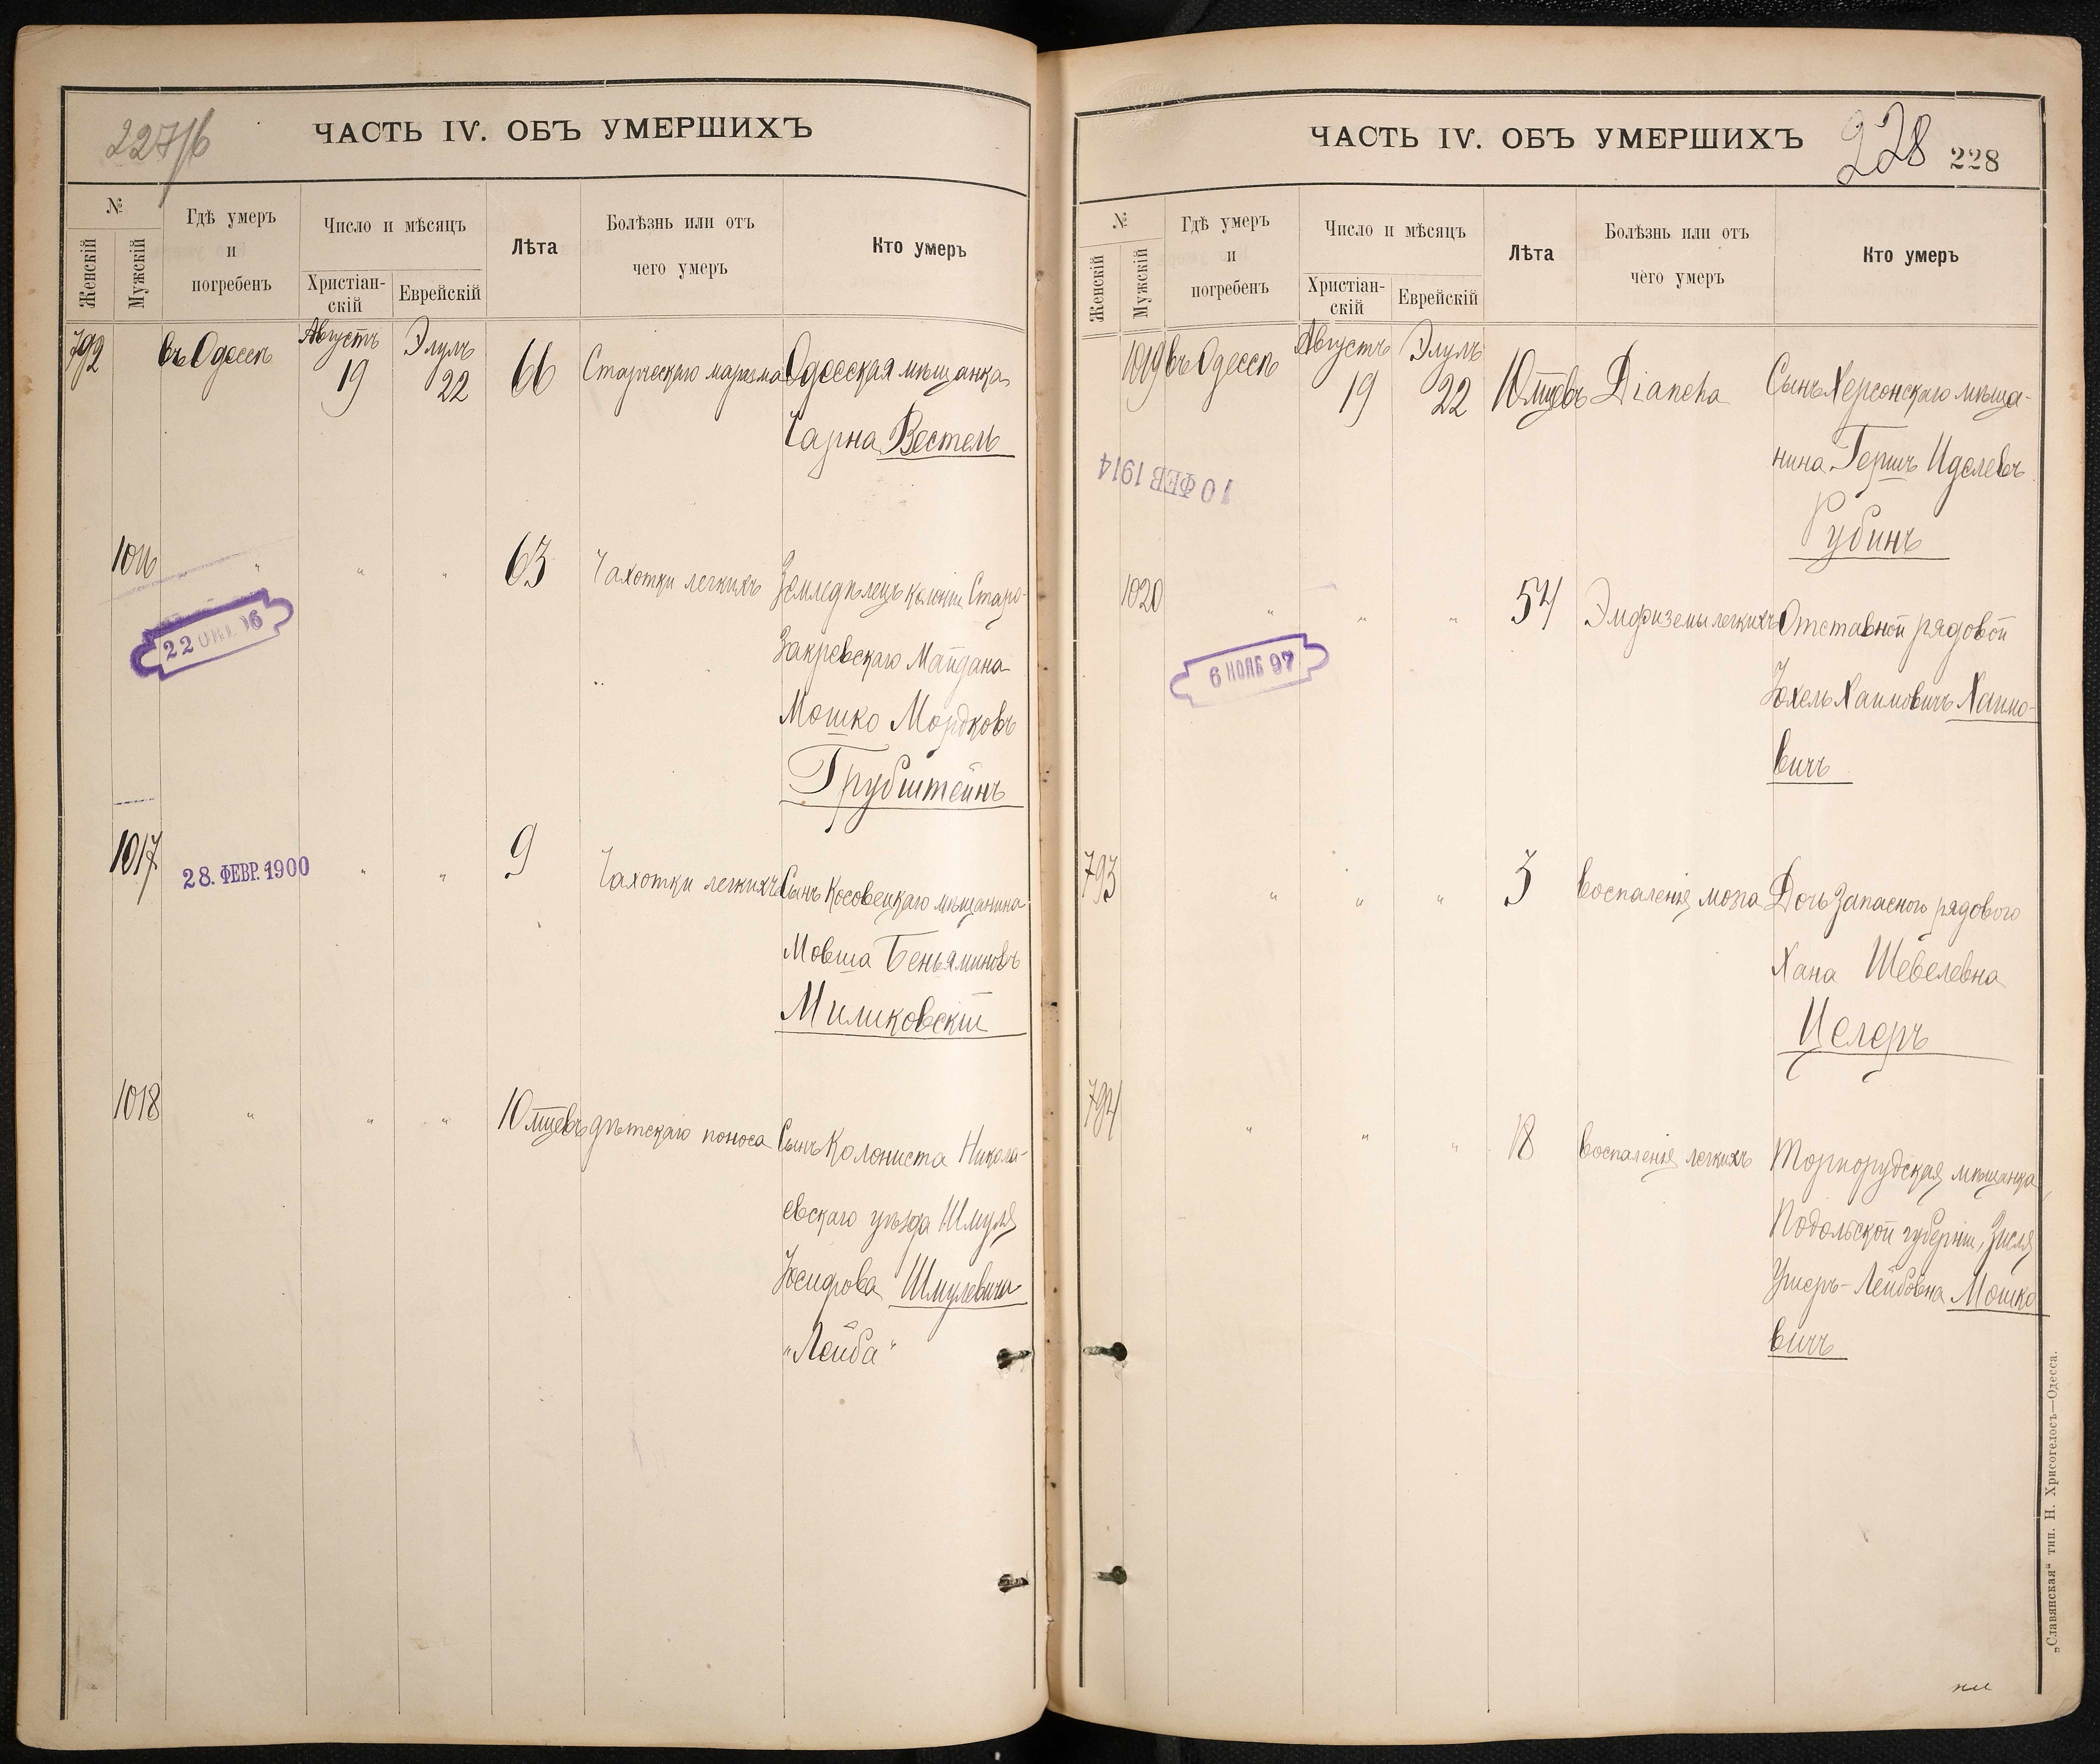 227/б
ЧАСТЬ IV. ОБЪ УМЕРШИХЪ
№
Женскій
Мужскій
Гдѣ умеръ
и
погребенъ
Число и мѣсяцъ
Христіан-
скій
Еврейскій
Лѣта
Болѣзнь или отъ
чего умеръ
Кто умеръ
792 въ Одессѣ Августъ 19 Элулъ 22 66 Старческаго маразма Одесская мѣщанка
Чарна Вестель
1016 " " " 63 Чахотки легкихъ Земледѣлецъ колоніи Старо-
Закревскаго Майдана
Мошко Мордковъ
Грубштейнъ
1017 28. ФЕВР. 1900 " " 9 Чахотки легкихъ Сынъ Косовецкаго мѣщанина
Мовша Беньяминовъ
Миликовскій
1018 " " " 10 мцевъ дѣтскаго поноса Сынъ Колониста Никола-
евскаго уѣзда Шмуля
Юсидрова Шмулевича
"Лейба"
ЧАСТЬ IV. ОБЪ УМЕРШИХЪ
228
228
№
Женскій
Мужскій
Гдѣ умеръ
и
погребенъ
Число и мѣсяцъ
Христіан-
скій
Еврейскій
Лѣта
Болѣзнь или отъ
чего умеръ
Кто умеръ
1019 въ Одессѣ Августъ 19 Элулъ 22 10 мцевъ Diancha Сынъ Херсонскаго мѣща-
нина Гершъ Иделевъ
Рубинъ
10 ФЕВ 1914
1020 " " " 54 Эмфиземы легкихъ Отставной рядовой
Іохель Хаимовичъ Хаимо-
вичъ
9 ИЮНЯ 97
793 " " " 3 воспаленія мозга Дочь Запасного рядового
Хана Шевелевна
Целеръ
794 " " " 18 воспаленія легкихъ Торнорудская мѣщанка
Подольской губерніи, Зисля
Ушеръ-Лейбовна Мошко
вичъ
„Славянская“ тип. Н. Хрисогелосъ—Одесса.